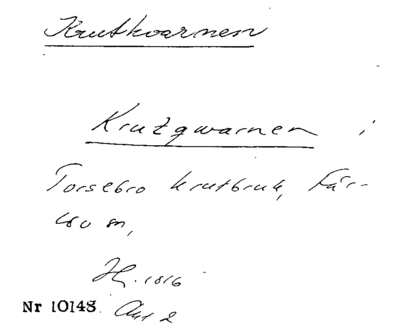 Krutkvarnen
Krutqwarnen i
Torsebro krutbruk, Fär-
lövs sn,
Hf. 1816
Nr 10148 Akt 2